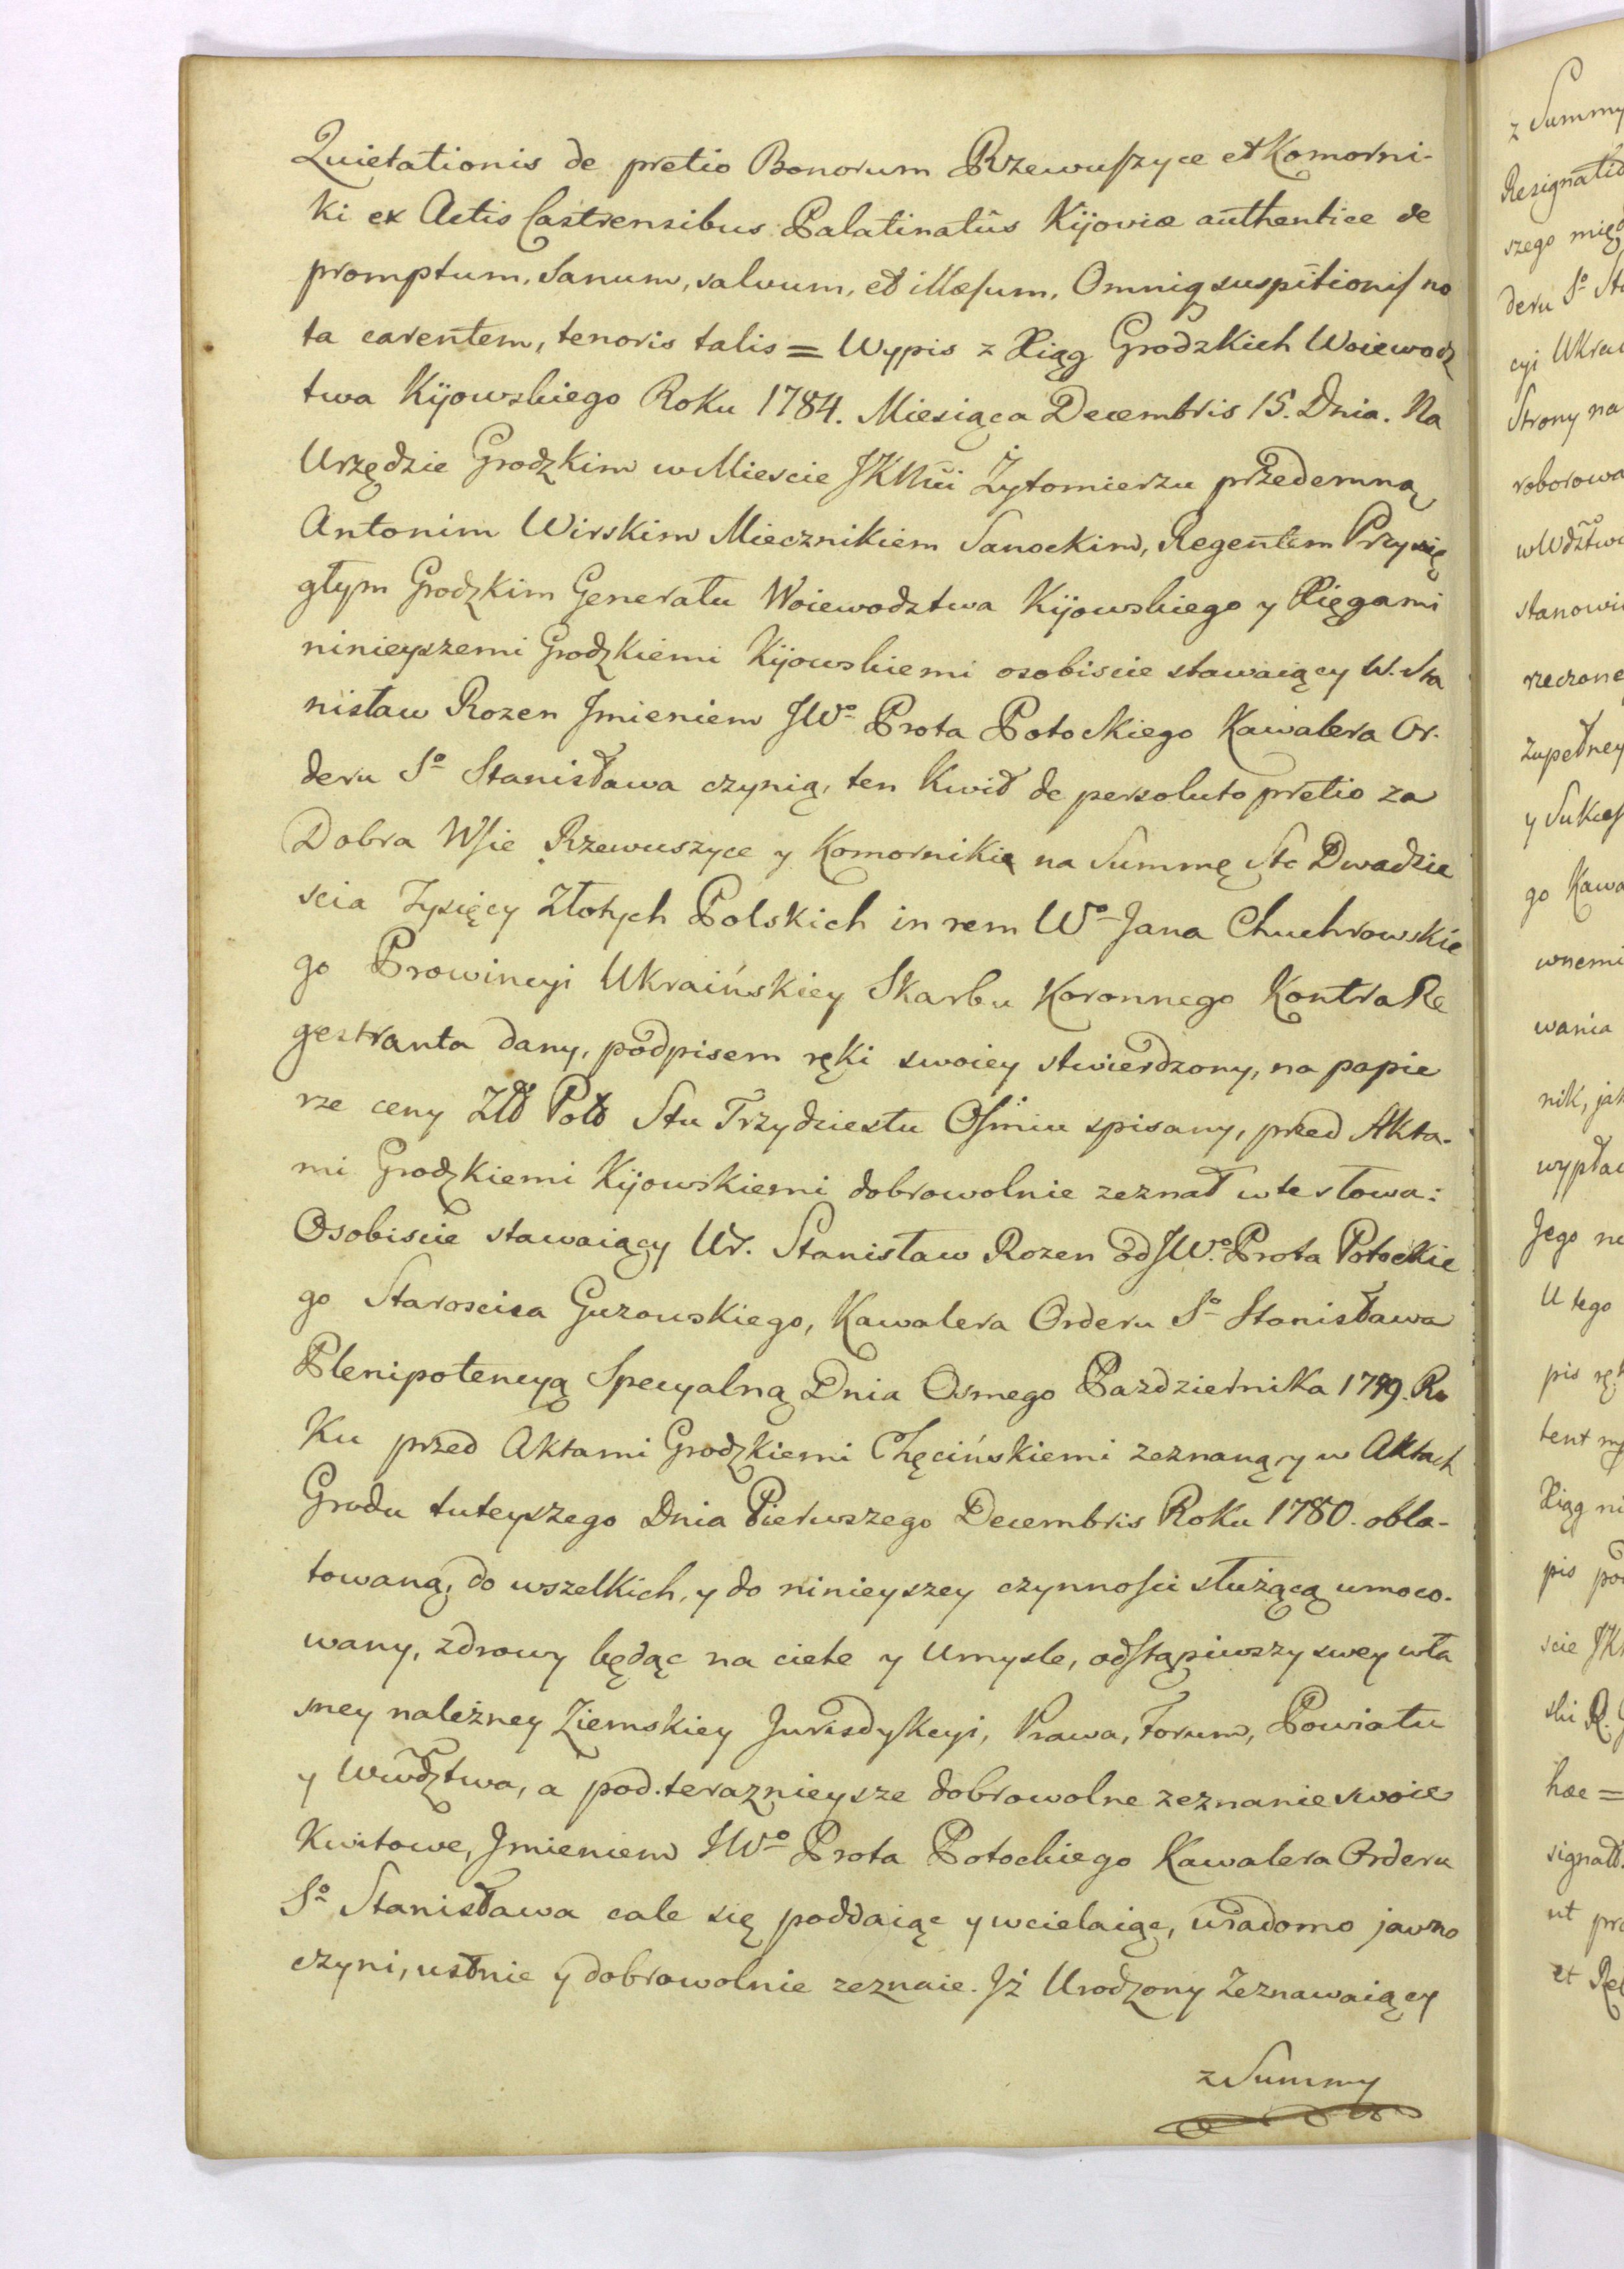 Quietationis de pretio Bonorum Rzewuszyce et Komorni-
ki ex Actis Castrensibus Palatinatûs Kijoviæ authentice de
promptum, Sanum, salvum, et illæsum, Omniq suspitionis no
ta carentem, tenoris talis = Wypis z Xiąg Grodzkich Woiewodz
twa Kijowskiego Roku 1784. Miesiąca Decembris 15. Dnia. Na
Urzędzie Grodzkim w Miescie JKMci Żytomierzu przedemną
Antonim Wirskim Miecznikiem Sanockim, Regentem Przysię
głym Grodzkim Generału Woiewodztwa Kijowskiego y Xięgami
ninieyszemi Grodzkiemi Kijowskiemi osobiscie stawaiący W. Sta
nisław Rozen Jmieniem JWº Prota Potockiego Kawalera Or-
deru Sº Stanisława czynią, ten Kwit de persoluto pretio za
Dobra Wsie Rzewuszyce y Komornikie na Summę Sto Dwadzie
scia Tysięcy Złotych Polskich in rem Wº Jana Chuchrowskie
go Prowincyi Ukraińskiey Skarbu Koronnego KontraRe
gestranta dany, podpisem ręki swoiey stwierdzony, na papie
rze ceny Złł Poll Stu Trzydziestu Osmiu spisany, przed Akta-
mi Grodzkiemi Kijowskiemi dobrowolnie zeznał w te słowa:
Osobiscie stawaiący Ur. Stanisław Rozen od JW.º Prota Potockie
go Starościca Guzowskiego, Kawalera Orderu Sº Stanisława
Plenipotencyą Specyalną Dnia Osmego Pazdziernika 1779. Ro
Ku przed Aktami Grodzkiemi Chęcińskiemi zeznaną, y w Aktach
Grodu tuteyszego Dnia Pierwszego Decembris Roku 1780. obla-
towaną, do wszelkich, y do ninieyszey czynnosci służącą umoco-
wany, zdrowy będąc na ciele y Umysle, odstąpiwszy swey wła
sney należney Ziemskiey Jurisdykcyi, Prawa, Forum, Powiatu
y Wwdztwa, a pod teraznieysze dobrowolne zeznanie swoie
Kwitowe, Jmieniem JWº Prota Potockiego Kawalera Orderu
Sº Stanisława cale się poddaiąc y wcielaiąc, wiadomo jawno
czyni, ustnie y dobrowolnie zeznaie. Jż Urodzony Zeznawaiący
z Summy
z Summy
Resignatio
szego międ
deru Sº Sta
cyi Ukra
Strony na
roborowa
w Wdztwa
stanowi
rzeczone
zupełney
y Sukces
go Kawa
wnemi
wania
nik, jak
wypłac
Jego
U tego
pis ręk
tent
Xiąg ni
pis po
scie JK
ski R.
hæc =
signatt
ut pr
et Re